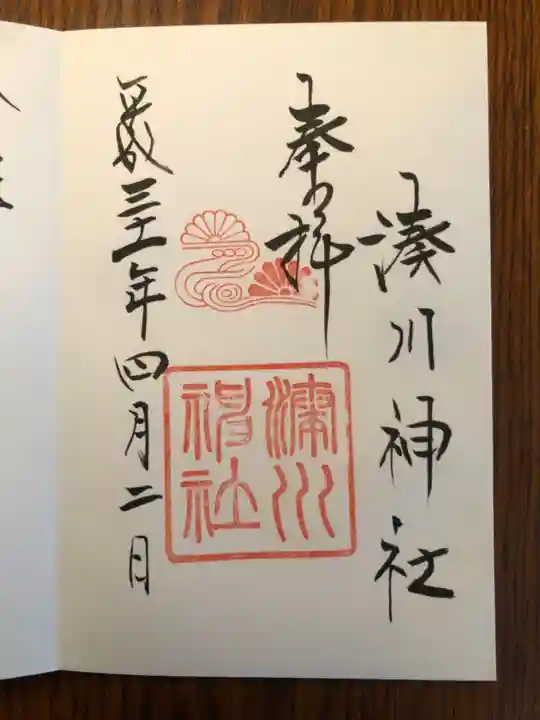 湊川神社
奉拝
湊川神社
平成三十一年四月二日